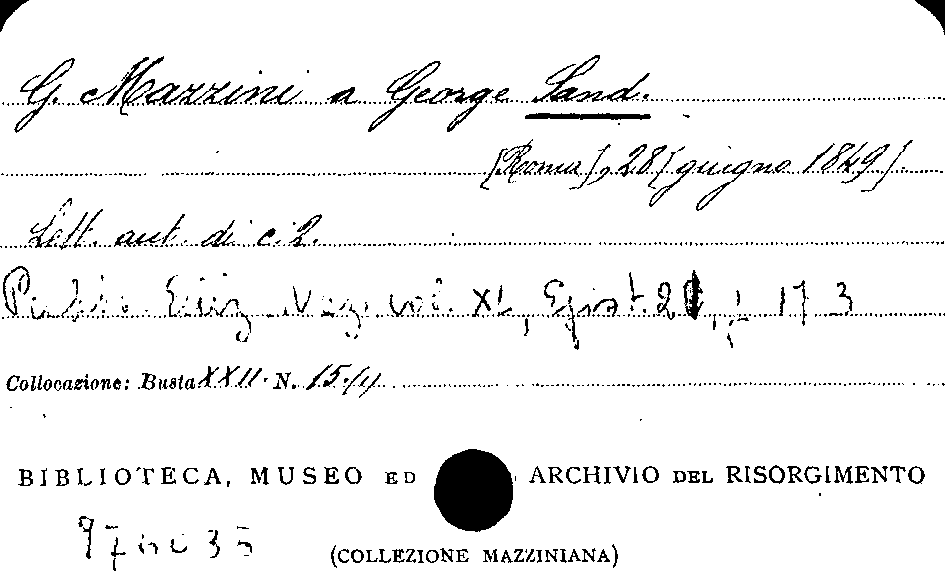 G. Mazzini a George Sand.
[Roma], 28 [giugno 1849].
Lett. aut. di c. 2.
Ediz. Naz. vol. XL, Epist. p. 173
Collocazione: Busta XXII. N. 15/4
BIBLIOTECA, MUSEO ED ARCHIVIO DEL RISORGIMENTO
(COLLEZIONE MAZZINIANA)